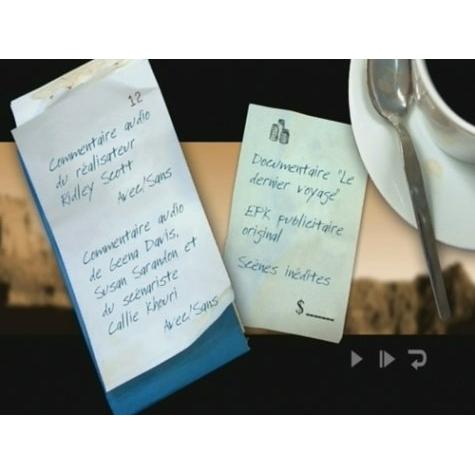 12
Commentaire audio
du réalisateur
Ridley Scott
Avec/Sans
Commentaire audio
de Geena Davis,
Susan Sarandon et
du scénariste
Callie Khouri
Avec/Sans
Documentaire "Le
dernier voyage"
EPK publicitaire
original
Scènes inédites
$